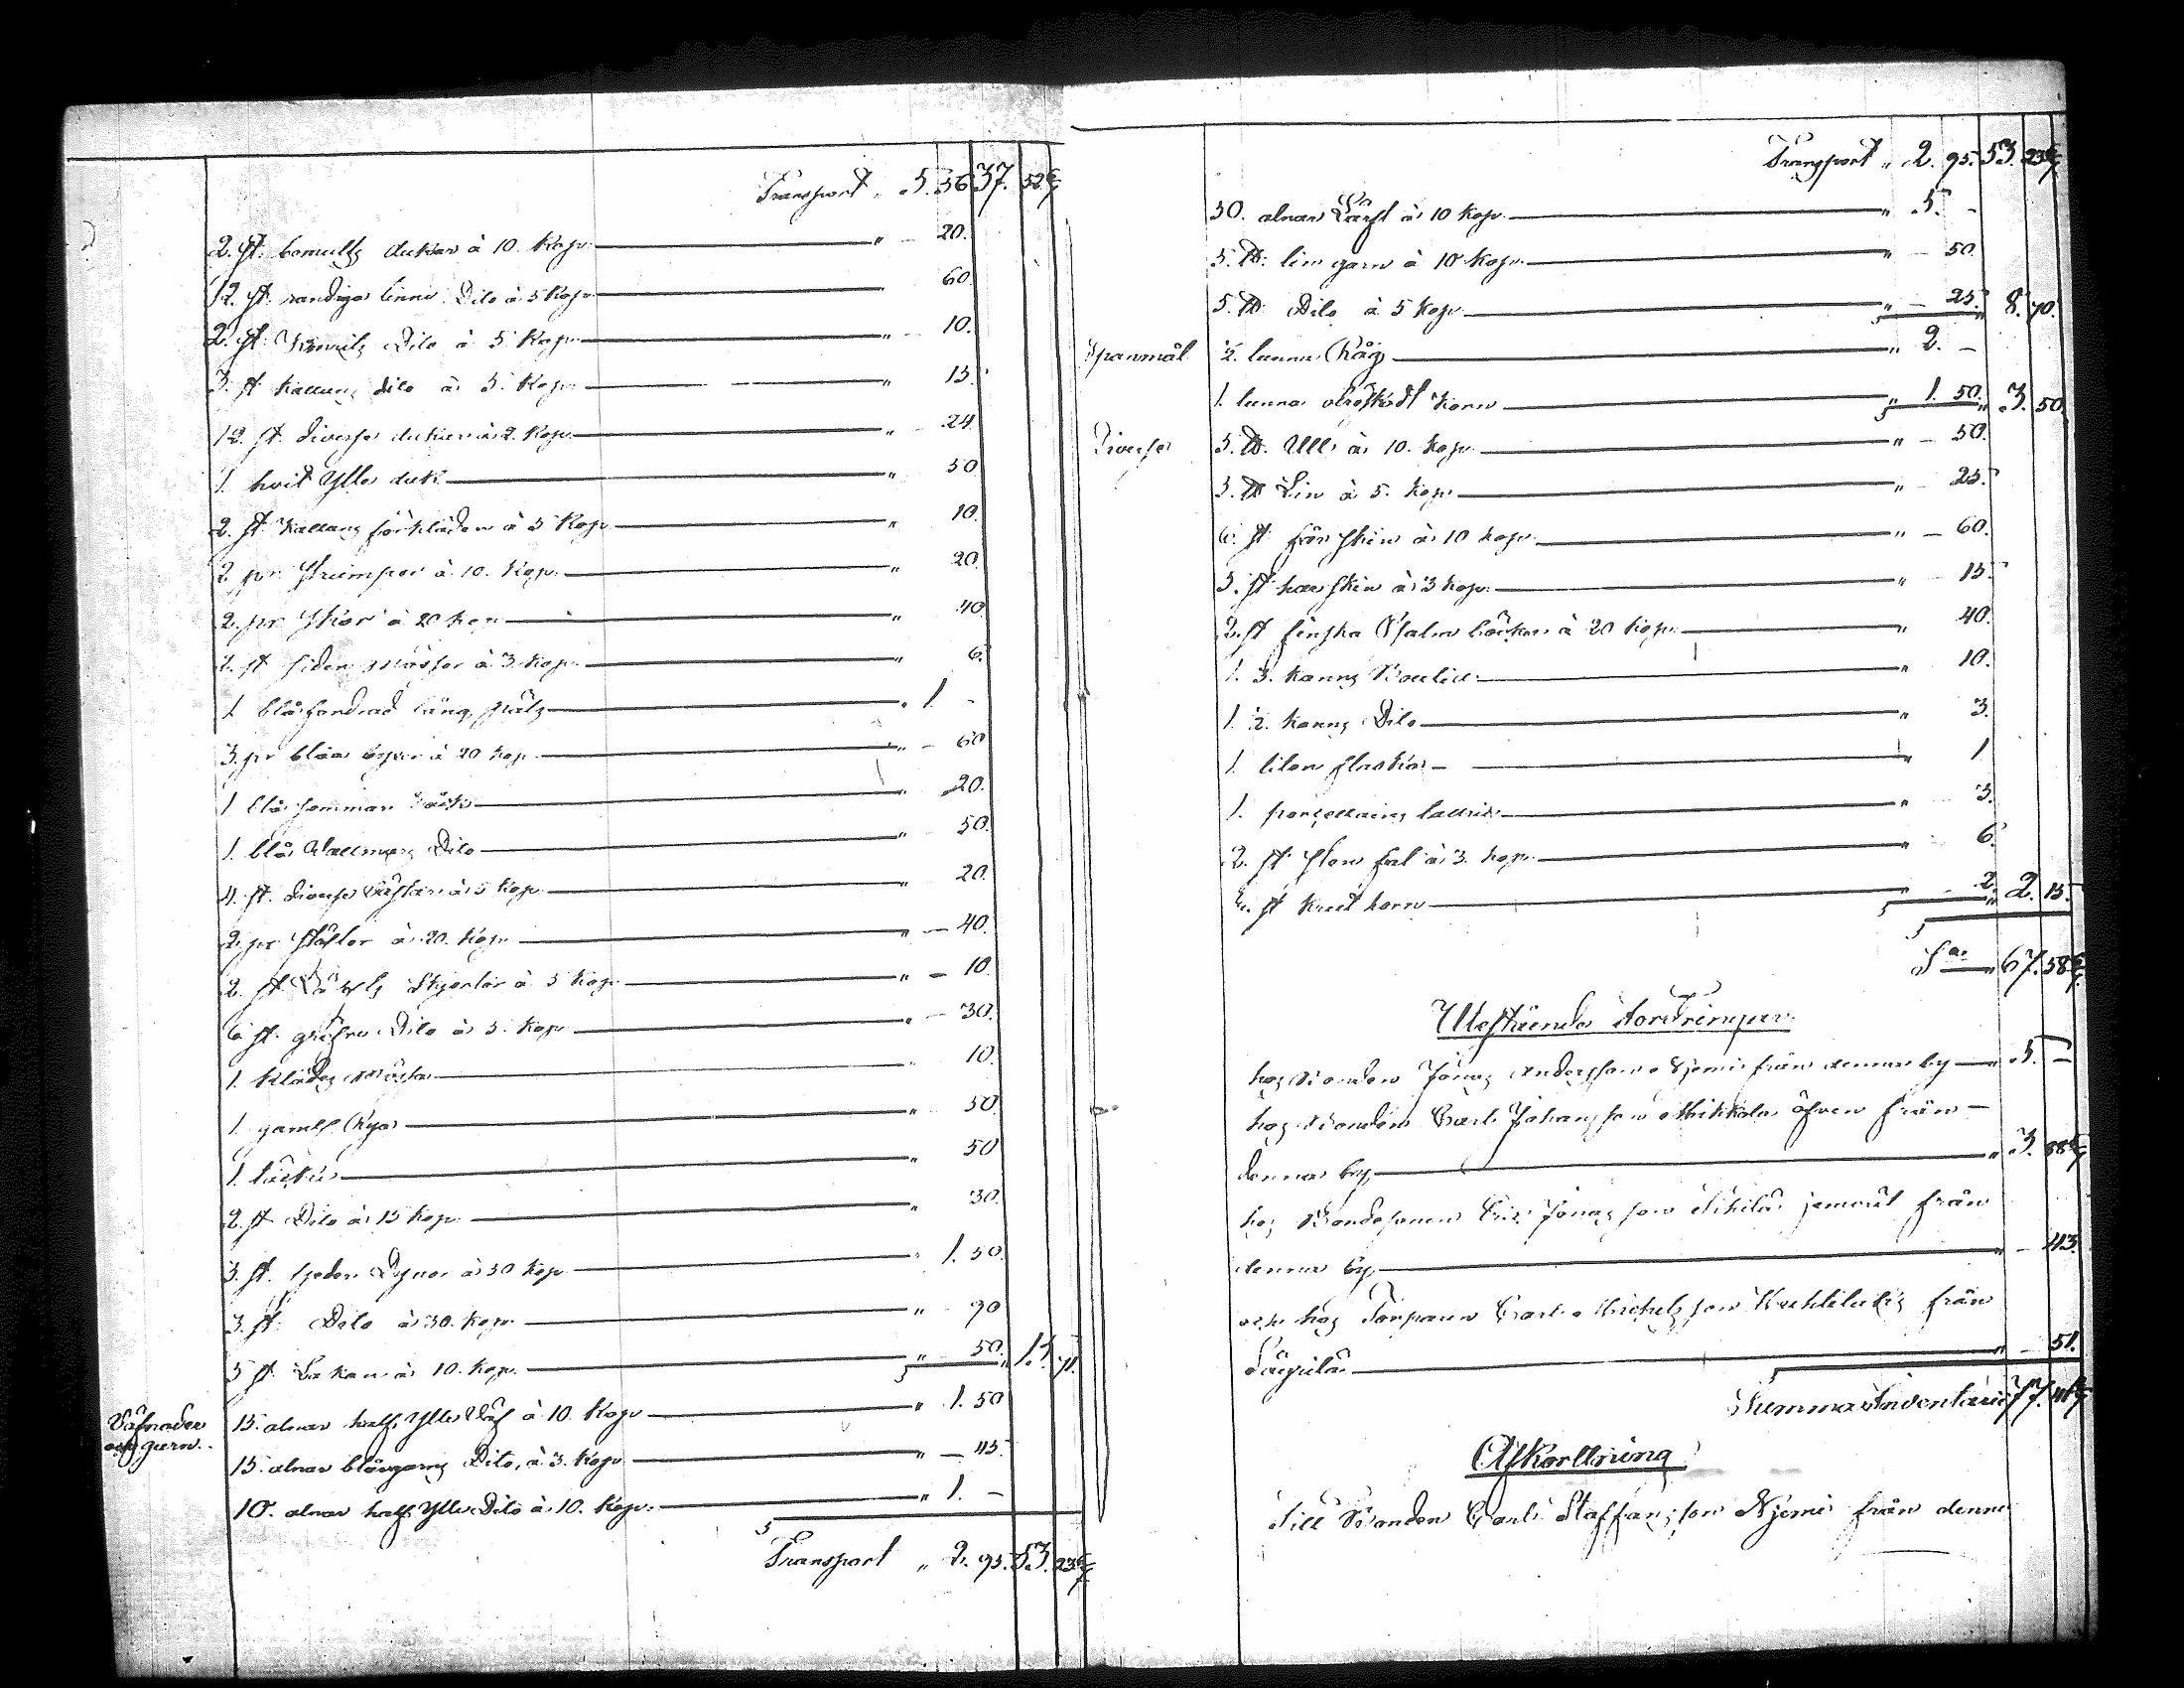 Transport „ 5. 56 37. 52 6/7
2. st. bomulls dukar à 10. Kop. „ – 20.
12. st. randiga linne Dito à 5 Kop. 60.
2. st. Dito à 5 Kop. „ – 10.
3. st. kattuns dito à 5. Kop. „ 15.
12. st. diverse dukar à 2. Kop. „ – 24.
1. hvit Ylle duk „ 50
2. st. Kattuns förkläden à 5 Kop. „ 10.
2 par Strumpor à 10. Kop. „ 20.
2. par Skor à 20 kop. „ 40
2. st. siden mössor à 3. kop. „ 6.
1. blå fordrad lång päls „ 1. –
3. pr blåa à 20 kop. „ – 60
1 blå sommar „ 20.
1. blå Wallmars Dito „ 50.
4. st. diverse à 5 kop. „ 20.
2. pr Stöflor à 20. Kop. „ – 40.
2. st. Skjortor à 5 Kop. „ – 10
6 st. gröfre Dito à 5. Kop. „ – 30.
1. Klädes mössa „ 10.
1. gamll Rya „ 50
1. täcke „ 50
2. st. Dito à 15 kop. „ 30.
3. st. fjeder Dynor à 50 kop. „ 1. 50.
3. st. Dito à 30. kop. „ 90
5 st. Lakan à 10. kop. „ 50. 15. 71.
Väfnader
och garn. 15. alnar half Ylle Väf à 10. Kop. „ 1. 50
15. alnar blångarns Dito, à 3. Kop. „ – 45.
10. alnar half Ylle Dito à 10. Kop. „ 1. –
Transport „ 2. 95. 53. 23 6/7
Transport „ 2. 95. 53. 23 6/7
50. alnar Lärft à 10 Kop. „ 5. –
5. ℔. lin garn à 10 Kop. „ – 50.
5. ℔. Dito à 5 Kop. „ – 25. 8. 70.
Spanmål ½. tunna Råg „ 2. –
1. tunna otröskadt korn „ 1. 50. 3. 50.
Diverse 5. ℔. Ull à 10. Kop. „ – 50.
5. ℔ Lin à 5. Kop. „ – 25.
6. st. fårskin à 10 kop. „ – 60.
5. st harskin à 3 kop. „ 15.
2. st finska Psalm böcker à 20 kop. „ 40.
1. 3. kanns Boutell „ 10.
1. ½. kanns Dito „ 3.
1. liten flaska „ 1
1. porcellains tallrik „ 3.
2. st. sten fat à 3. kop. „ 6.
2. st krut horn „ 2. 2. 15.
S:a „ 67. 58 6/7
Utestående fordringar.
hos Bonden Jonas Andersson Njemi från denna by „ 5. –
hos Bonden Carl Johansson Mikkola äfven från
denna by „ 3. 88 4/7
hos Bondesonen Eric Jonasson jemväl från
denna by „ – 43.
och hos Torparen Carl Michelsson från
„ – 51.
Summa Inventarii 77. 41 3/7
Afkortning
Till Bonden Carl Staffansson Njemi från denna